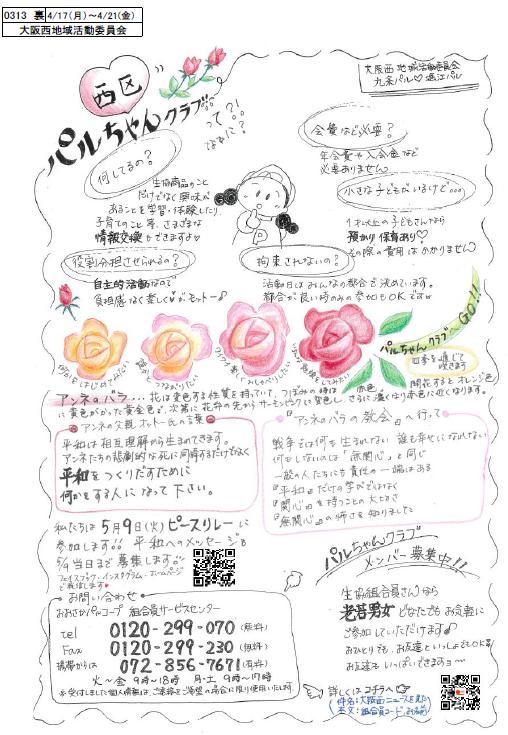 0313 裏 4/17(月)～4/21(金)
大阪西地域活動委員会
西区
パルちゃんクラブ
って?!
なぁに?
大阪西地域活動委員会
九条パル♡堀江パル
何してるの?
生協商品のこと
だけでなく興味が
あることを学習・体験したり、
子育てのこと等、さまざまな
情報交換もできますよ♡
会費など必要?
年会費や入会金など
必要ありません
小さな子どもがいるけど…
1才以上の子どもさんなら
預かり保育あり♡
その際の費用はかかりません
役割分担させられるの?
自主的活動なので
負担感なく楽しく♡がモットー♪
拘束されないの?
活動日はみんなの都合で決めています。
都合が良い時のみの参加もOKです
パルちゃんクラブへGO!!
四季を通じて
咲きます
何かをはじめてみたい
誰かとつながりたい
ワイワイ楽しくおしゃべりしたい
アンネのバラ...花は変色する性質を持っていて、つぼみの時は赤色、開花するとオレンジ色
に黄色がかった黄金色で、次第に花弁の先からサーモンピンクに変色し、さらに濃くなり赤色に近くなります。
アンネの父親オットー氏の言葉
平和は相互理解から生まれてきます。
アンネたちの悲劇的な死に同情するだけではなく
平和をつくりだすために
何かをする人になって下さい。
『アンネのバラの教会』へ行って
戦争では何も生きらない 誰も幸せになれない
何もしないのは「無関心」と同じ
一般の人たちにも責任の一端はある
『平和』だけの学びではなく
『関心』を持つことの大切さ
『無関心』の怖さを知りました
私たちは5月9日(火)ピースリレーに
参加します!! 平和へのメッセージを
5/9当日まで募集します!!
フェイスブック・インスタグラム・ホームページ
で発信します♥
お問い合わせ
おおさかパルコープ 組合員サービスセンター
tel 0120-299-070(無料)
Fax 0120-299-230(無料)
携帯からは 072-856-7671(有料)
火～金 9時～18時 月・土 9時～17時
※受付しました個人情報は、ご連絡とご希望の場合に限り使用いたします。
パルちゃんクラブ
メンバー募集中!!
生協組合員さんなら
老若男女どなたでもお気軽に
ご参加していただけます♪
おひとりでも、お友達といっしょでもOK
お友達もいっぱいできますヨ～
詳しくはコチラへ
(件名:大阪西ニュースを見た
本文:組合員コード・お名前)